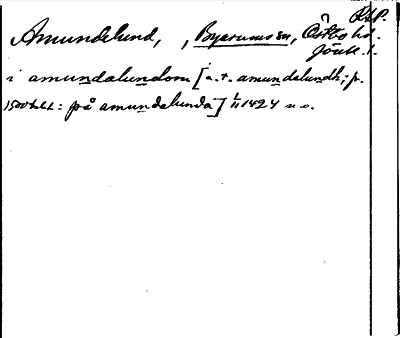 RAP.
Amundslund, , Byarums sn, Östbo hd.
Jönk. l.
i amundalundom [a.t. amundalundh; p.
1500 tal: på amundalunda] 1/11 1424 n o.